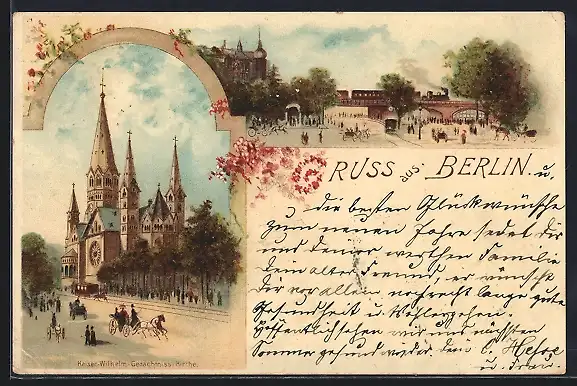 GRUSS aus BERLIN. u.
die besten Glückwünsche
zum neuen Jahre sedet dir
und deiner werthen Familie
dein alter Freund, er wünscht
Dir vor allem noch recht lange gute
Gesundheit u. Wohlergehen.
Hoffentlich sehen wir uns nächsten
Sommer gesund wieder. dein C.
u. Frau.
Kaiser-Wilhelm-Gedächtniss-Kirche.